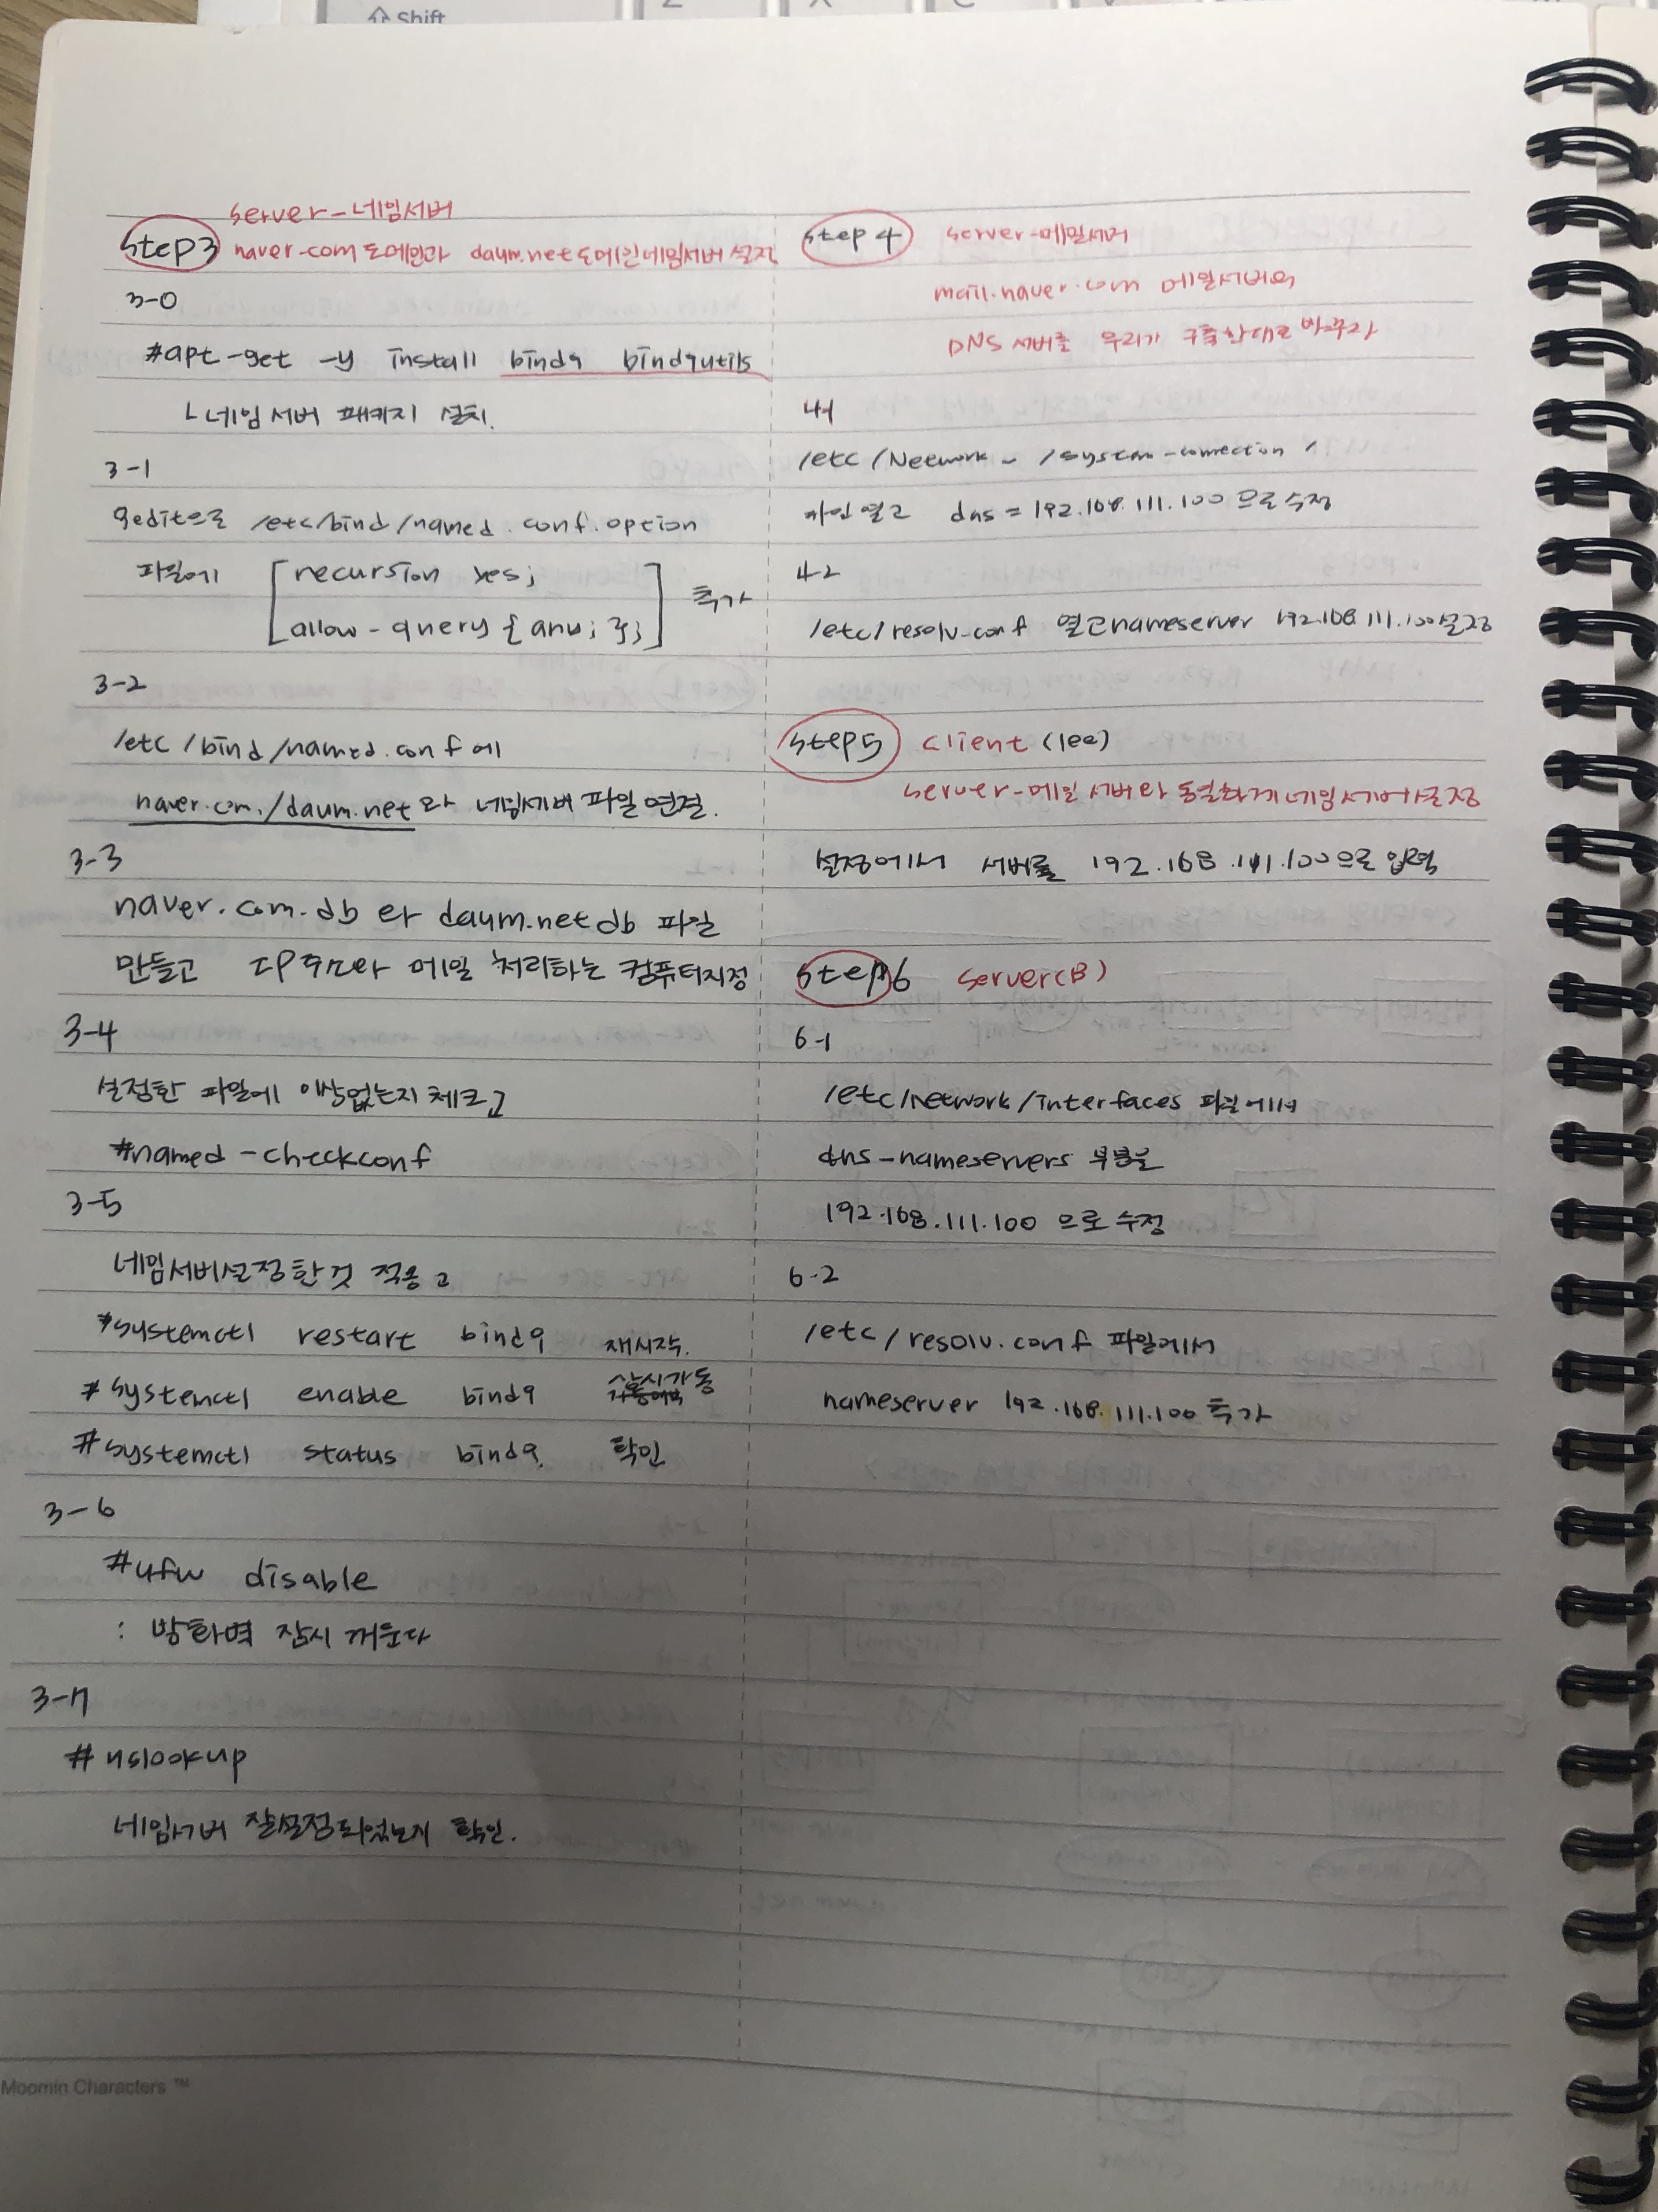 Shift
server-네임서버
step3 naver.com 도메인과 daum.net 도메인네임서버 설정
3-0
#apt-get -y install bind9 bind9utils
ㄴ네임서버 패키지 설치.
3-1
gedit으로 /etc/bind/named.conf.option
파일에 [recursion yes;
allow-query { any; };] 추가
3-2
/etc/bind/named.conf에
naver.com./daum.net와 네임서버 파일 연결.
3-3
naver.com.db 와 daum.netdb 파일
만들고 IP주소와 메일 처리하는 컴퓨터지정
3-4
설정한 파일에 이상없는지 체크
#named-checkconf
3-5
네임서버설정한것 적용
#systemctl restart bind9 재시작.
#systemctl enable bind9 상시가동
#systemctl status bind9. 확인
3-6
#ufw disable
: 방화벽 잠시 꺼둔다
3-7
#nslookup
네임서버 잘설정되었는지 확인.
step4 server-메일서버
mail.naver.com 메일서버의
DNS 서버를 우리가 구축한대로 바꾸자
4-1
/etc/Network~/system-connection/
파일열고 dns = 192.168.111.100으로수정
4-2
/etc/resolv.conf 열고nameserver 192.168.111.100설정
step5 client (lee)
server-메일서버와 동일하게네임서버설정
설정에서 서버를 192.168.111.100으로 입력
step6 server(B)
6-1
/etc/network/interfaces 파일에서
dns-nameservers 부분을
192.168.111.100 으로 수정
6-2
/etc/resolv.conf 파일에서
nameserver 192.168.111.100 추가
Moomin Characters ™